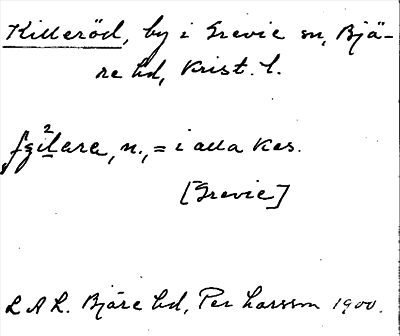 Killeröd, by i Grevie sn, Bjä-
re hd, Krist. l.
n., = i alla kas.
[Grevie]
L A L. Bjäre hd, Per Larsson 1900.